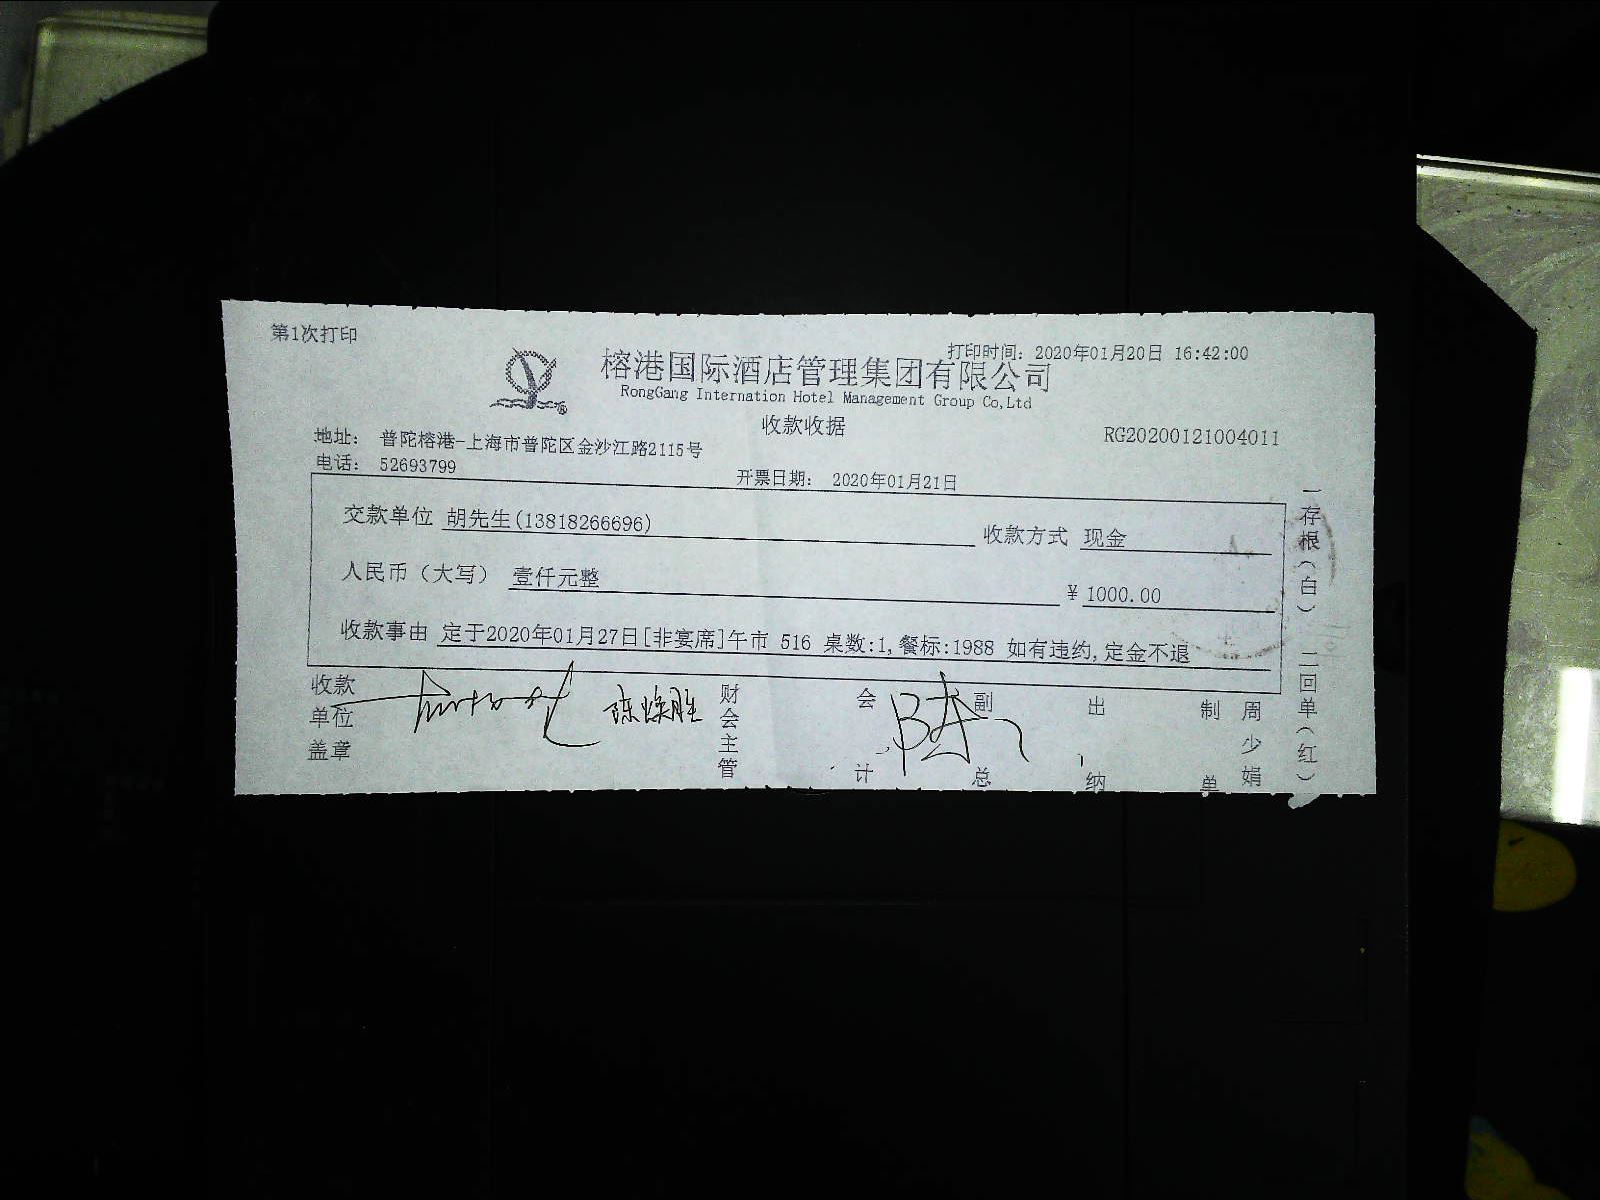 第1次打印
打印时间: 2020年01月20日 16:42:00
榕港国际酒店管理集团有限公司
RongGang Internation Hotel Management Group Co,Ltd
收款收据
RG20200121004011
地址: 普陀榕港-上海市普陀区金沙江路2115号
电话: 52693799
开票日期: 2020年01月21日
交款单位 胡先生(13818266696) 收款方式 现金
人民币（大写） 壹仟元整 ¥ 1000.00
收款事由 定于2020年01月27日[非宴席]午市 516 桌数:1,餐标:1988 如有违约,定金不退
收款单位盖章
陈焕胜
财会主管
会计
副总
出纳
制单
周少娟
一存根（白） 二回单（红）